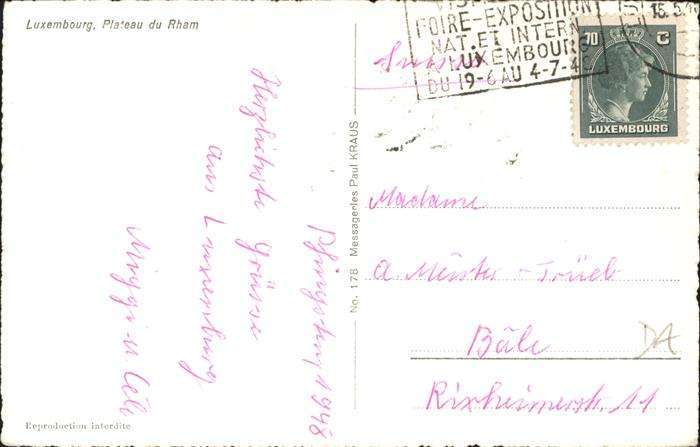 Luxembourg, Plateau du Rham
FOIRE-EXPOSITION
NAT. ET INTERN
LUXEMBOURG
DU 19-6 AU 4-7-4
15.5.4
70 C
LUXEMBOURG
Suisse
Pfingsten 1948
Herzlichste Grüsse
aus Luxemburg
No. 178 Messageries Paul KRAUS
Madame
A. Meister-Trüeb
Bâle
Rixheimerstr. 11
DA
Reproduction interdite